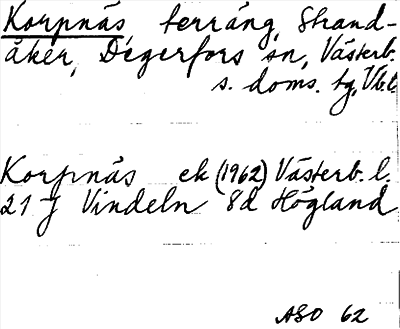 Korpnäs, terräng, Strand-
åker, Degerfors sn, Västerb.
s. doms. tg, Vb.l.
Korpnäs ek (1962) Västerb. l.
21 J Vindeln 8d Högland
ASO 62